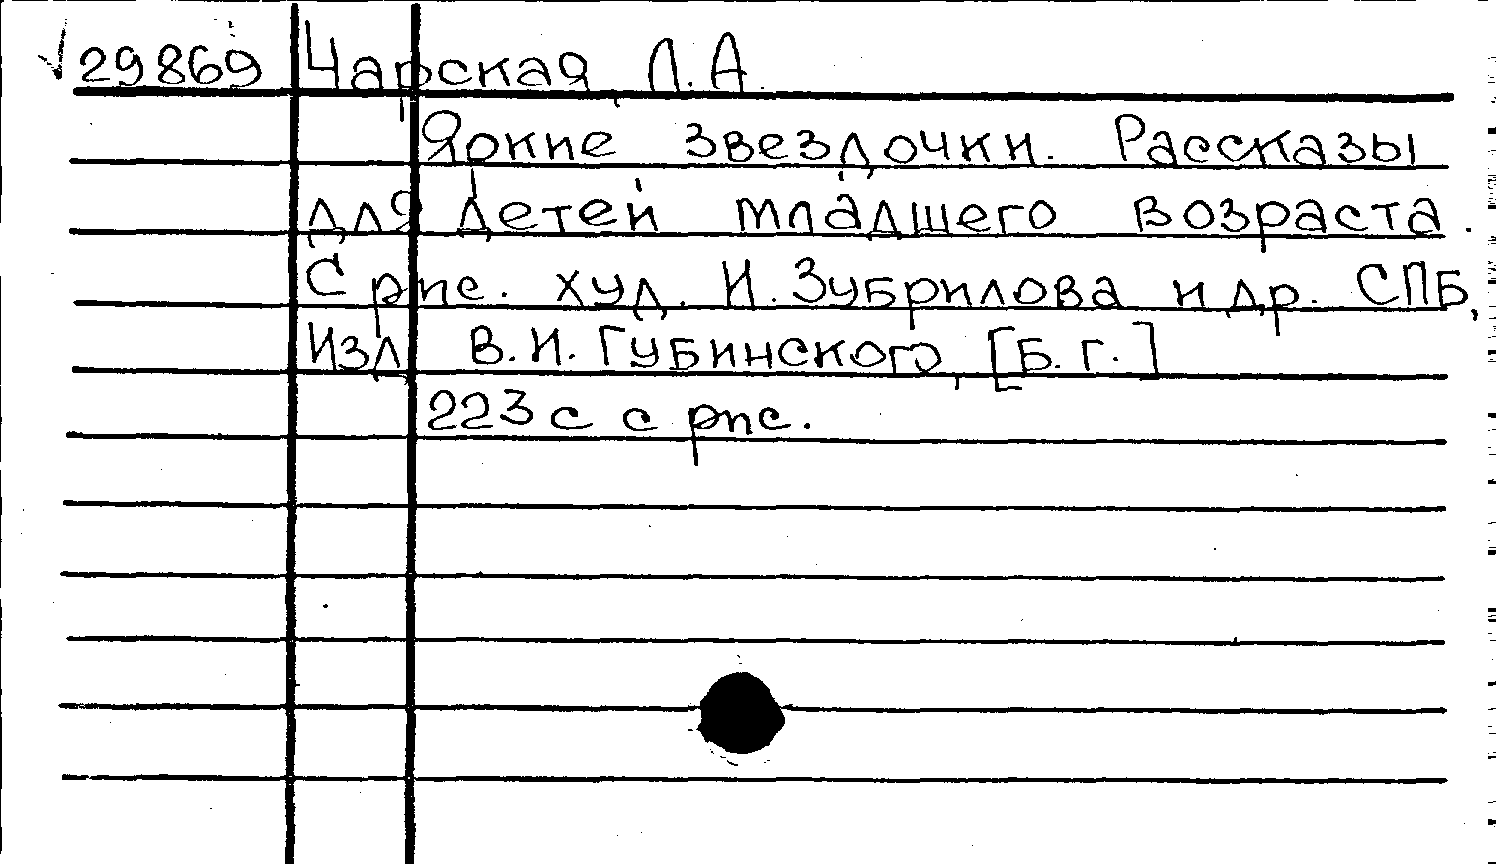 29869 Чарская, Л. А.
Яркие звездочки. Рассказы
для детей младшего возраста.
С рис. худ. И. Зубрилова и др. СПБ,
Изд. В. И. Губинского, [Б. г.]
223 с с рис.